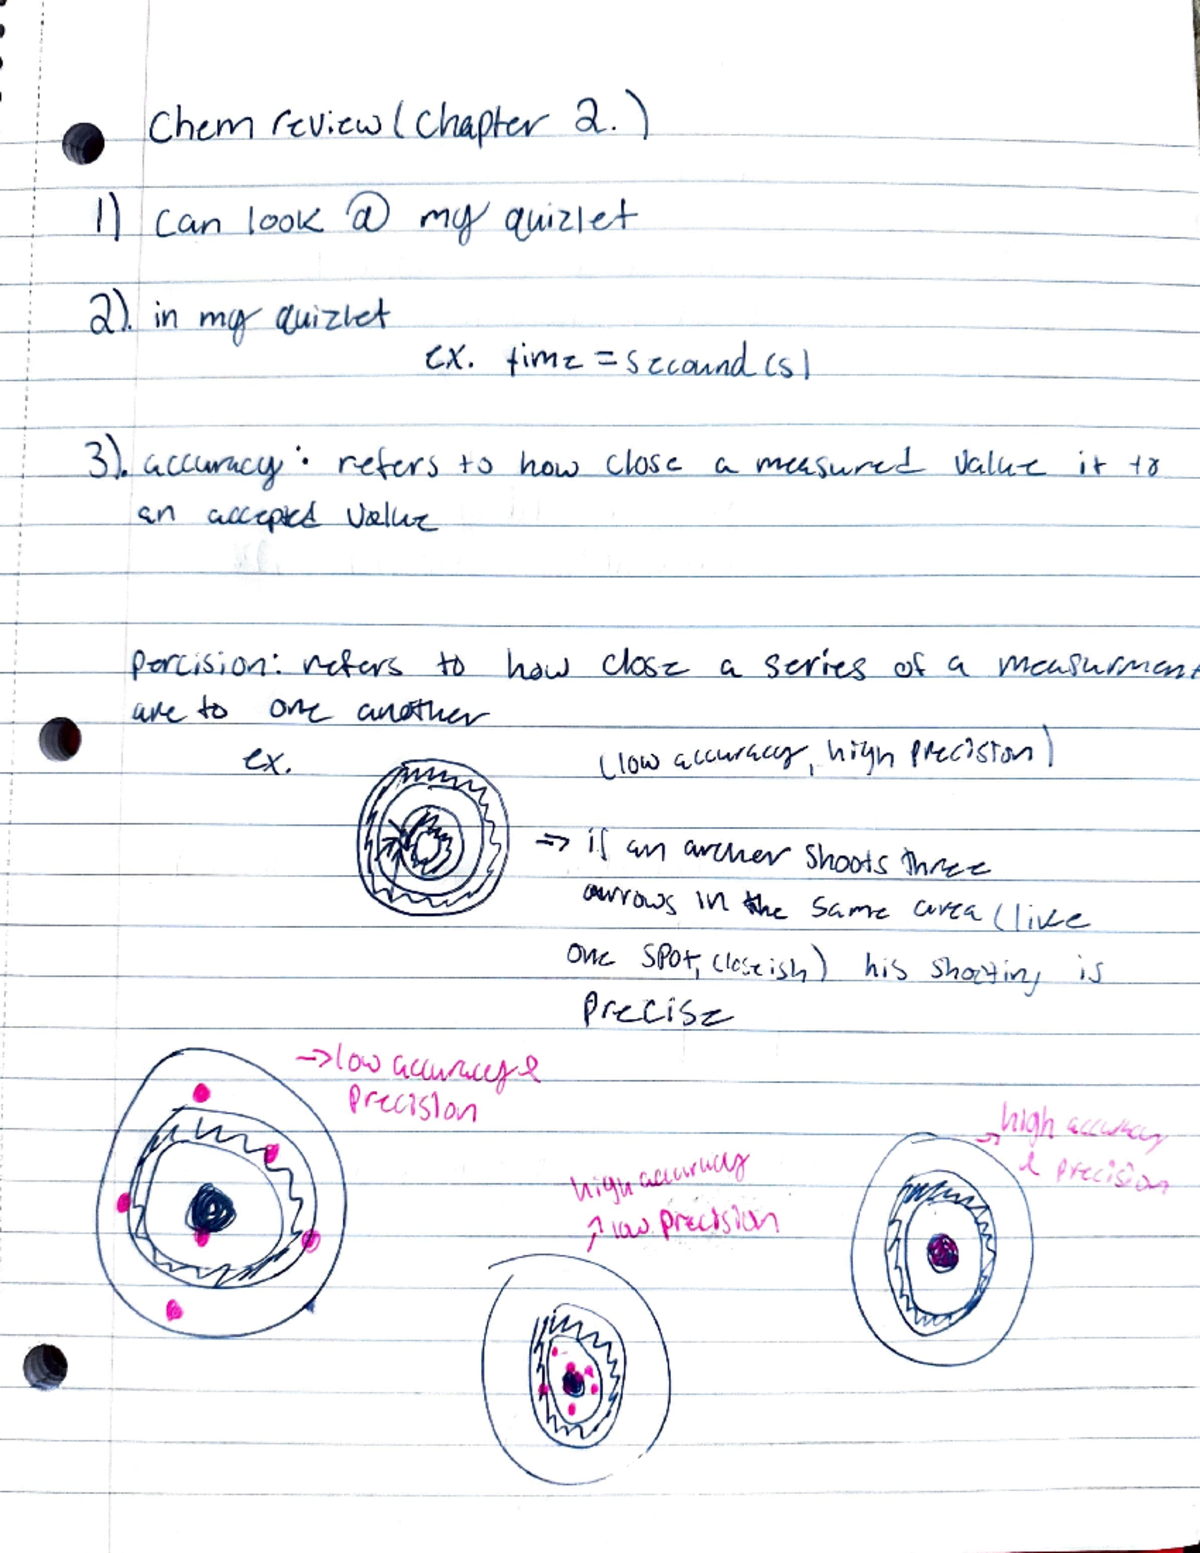 Chem review (Chapter 2.)
1) can look @ my quizlet
2). in my quizlet
ex. time = secound (s)
3). accuracy: refers to how close a measured value it to
an accepted value
percision: refers to how close a series of a measurment
are to one another
ex.
(low accuracy, high precision)
=> if an archer shoots three
arrows in the same area (like
one spot, closeish) his shooting is
precise
→ low accuracy &
precision
high accuracy
& precision
high accuracy
low precision